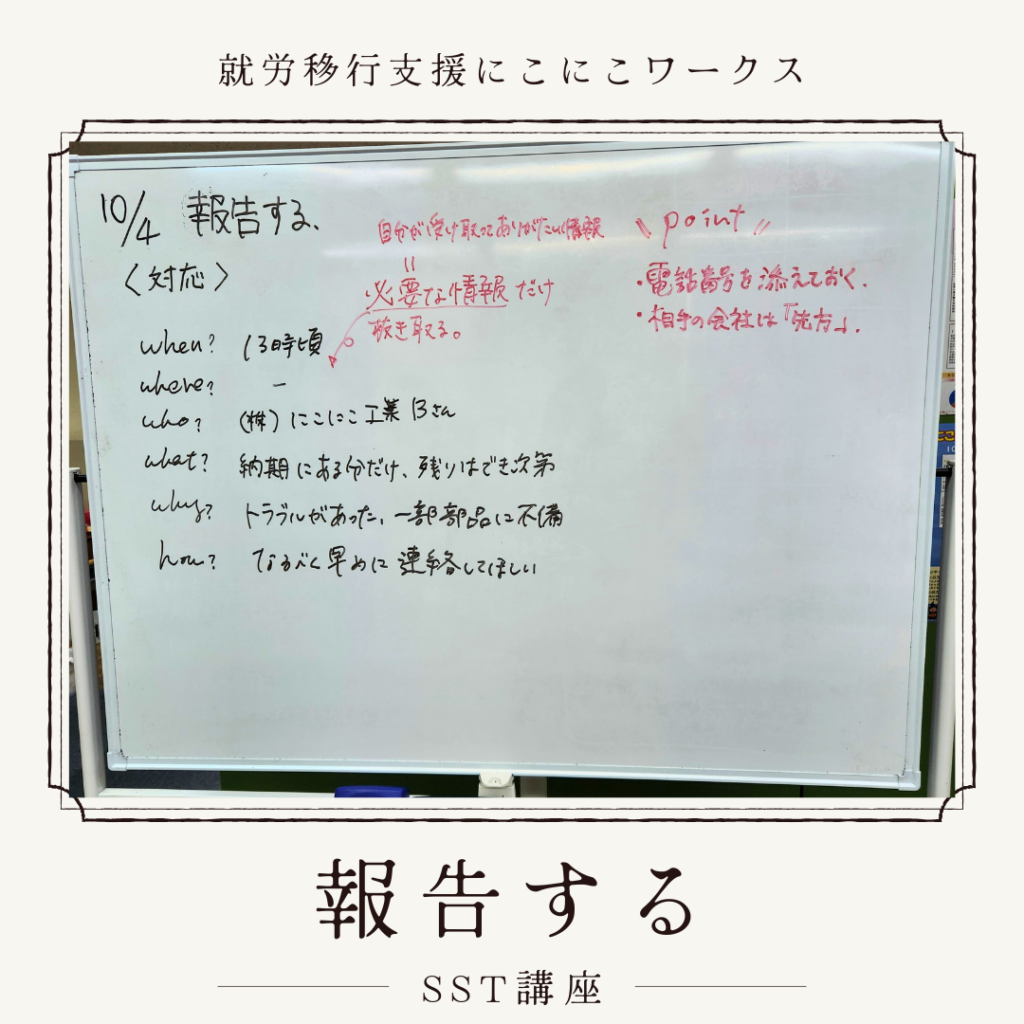 就労移行支援にこにこワークス
10/4 報告する、
〈対応〉
when? 13時頃
where? ー
who? (株)にこにこ工業 Bさん
what? 納期にある分だけ、残りはでき次第
why? トラブルがあった、一部部品に不備
how? なるべく早めに連絡してほしい
自分が受け取ってありがたい情報
=
必要な情報だけ
抜き取る。
\\ point //
・電話番号を添えておく.
・相手の会社は「先方」.
報告する
SST講座